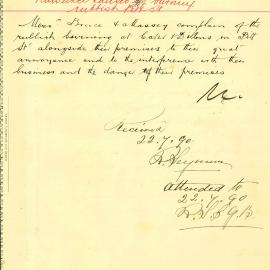 Nuisance caused by burning
rubbish Pitt St
Messrs Bruce & Massey complain of the
rubbish burning at Cates & Dillons in Pitt
St alongside their premises to their great
annoyance and to the interference with their
business and the danger of their premises
Received
22.7.90
R. Seymour
Attended to
22.7.90